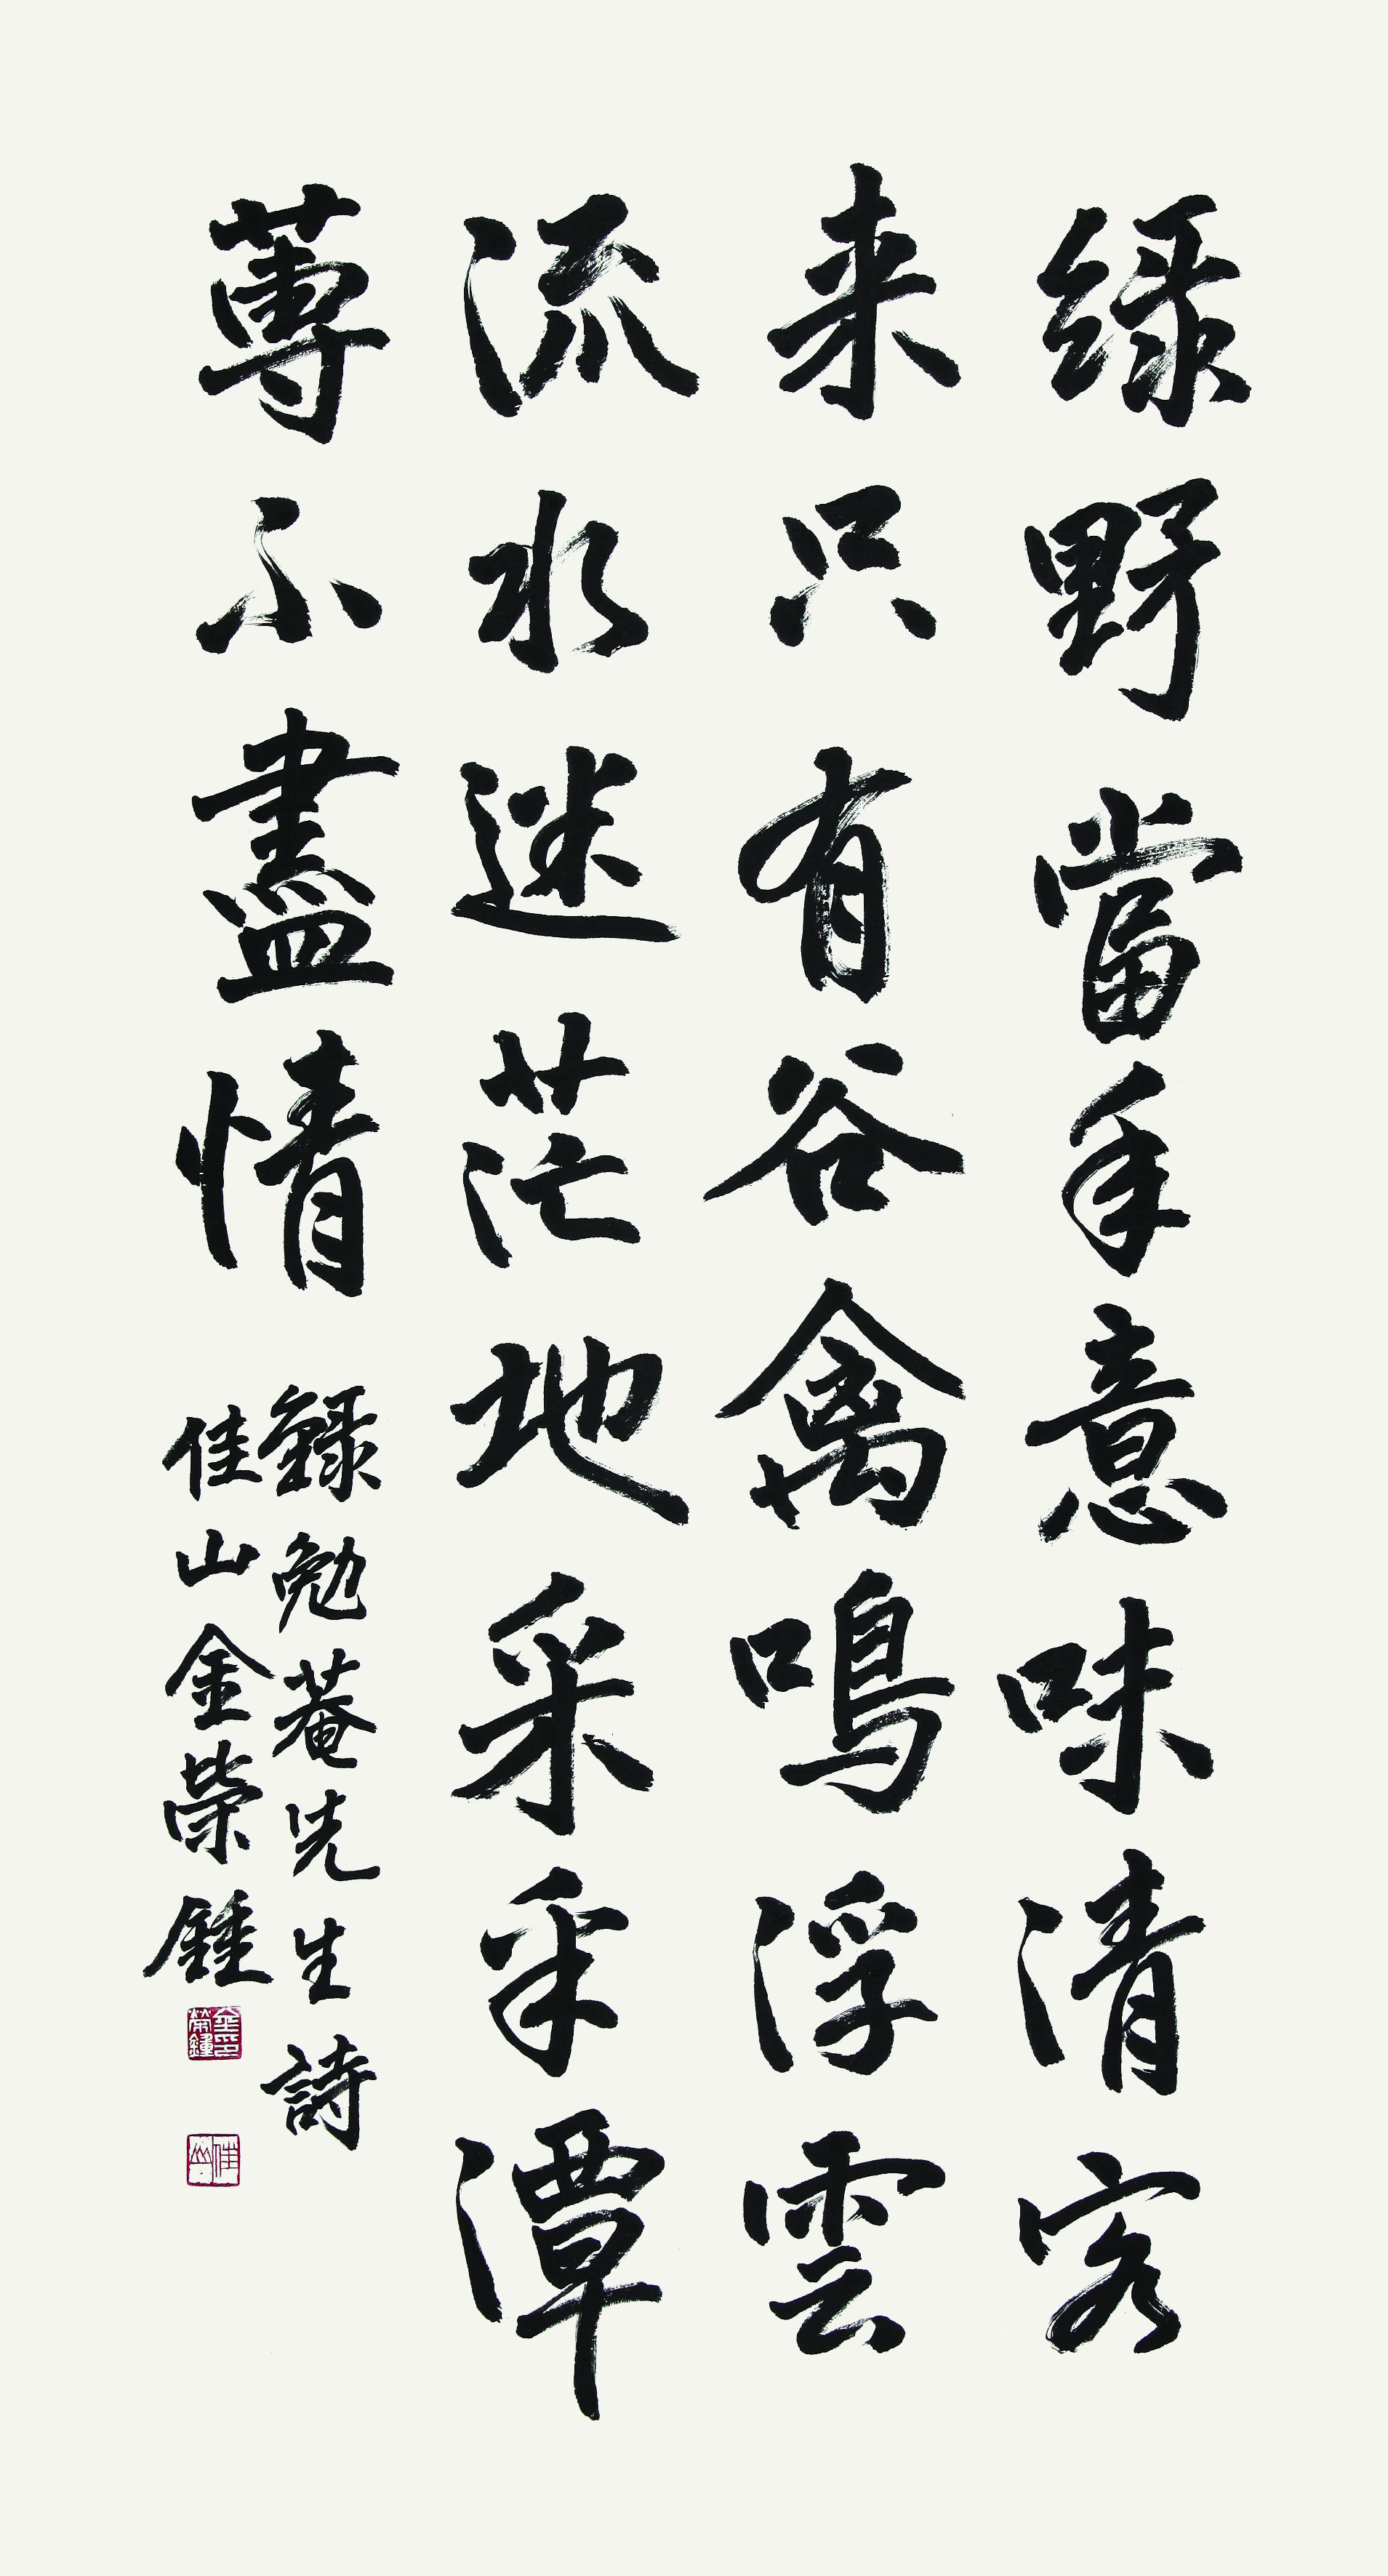 綠野當年意味清客
来只有谷禽鳴浮雲
流水迷茫地采采潭
蓴不盡情
錄勉菴先生詩
佳山金榮鍾
金榮鍾印
佳山